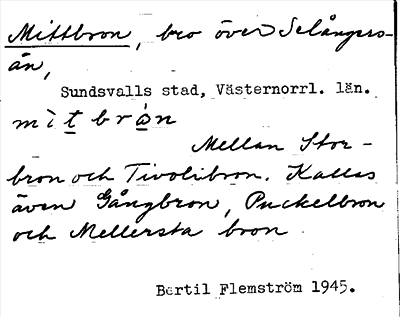 Mittbron, bro över Selångers-
ån,
Sundsvalls stad, Västernorrl. län.
mìt brón
Mellan Stor-
bron och Tivolibron. Kallas
även Gångbron, Puckelbron
och Mellersta bron.
Bertil Flemström 1945.